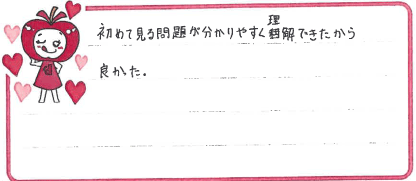 初めて見る問題が分かりやすく理解できたから
良かった。